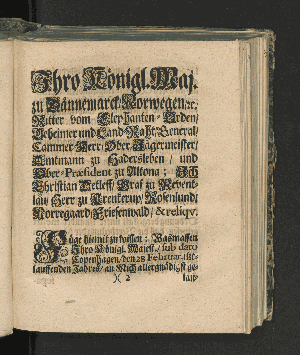 Ihro Königl. Maj.
zu Dännemarck Norwegen ꝛc.
Ritter vom Elephanten-Orden/
Geheimer und Land-Raht/ General/
Cammer-Herr/ Ober-Jägermeister/
Amtmann zu Hadersleben / und
Ober-Præsident zu Altona; Ich
Christian Detleff/ Graf zu Revent-
lau/ Herr zu Crenterup/ Rosenlund/
Norregaard/ Friesenwald/ & reliqv.
Füge hiemit zu wissen: Waßmassen
Ihro Königl. Majest. / sub dato
Copenhagen/ den 28 Februar. itzt-
lauffenden Jahres/ an Mich allergnädigst ge-
)( 2